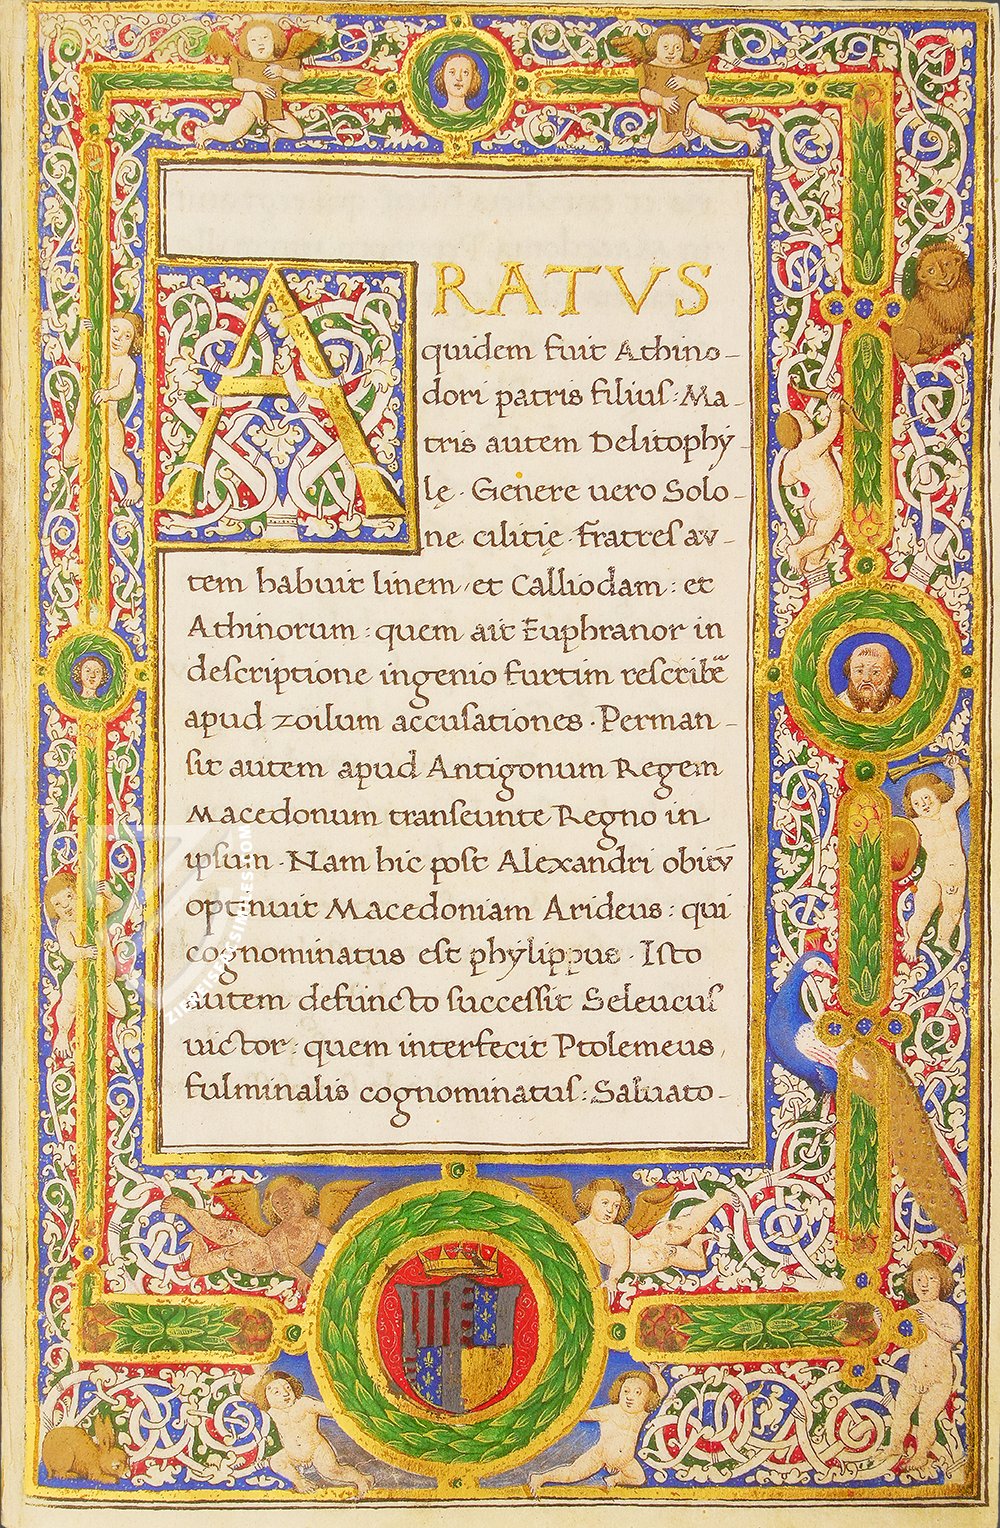 ARATVS
quidem fuit Athino-
dori patris filius: Ma-
tris autem Delitophy-
lę. Genere uero Solo-
ne cilitię. fratres au-
tem habuit linem, et Calliodam: et
Athinorum: quem ait Euphranor in
descriptione ingenio furtim rescribē
apud zoilum accusationes. Perman-
sit autem apud Antigonum Regem
Macedonum transeunte Regno in
ipsum. Nam hic post Alexandri obitū
optinuit Macedoniam Arideus: qui
cognominatus est phylippus. Isto
autem defuncto successit Seleucus
uictor: quem interfecit Ptolemeus,
fulminalis cognominatus: Saluato-
ZIEREISFACSIMILES.COM